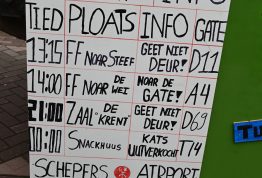 INFO
TIED PLOATS INFO GATE
13:15 FF NOAR STEEF GEET NIET DEUR! D11
14:00 FF NOAR DE WEI NOAR DE GATE! A4
21:00 ZAAL DE KRENT GEET NIET DEUR! D69
10:00 SNACKHUUS KATS UUTVERKOCHT T14
SCHEPERS AIRPORT